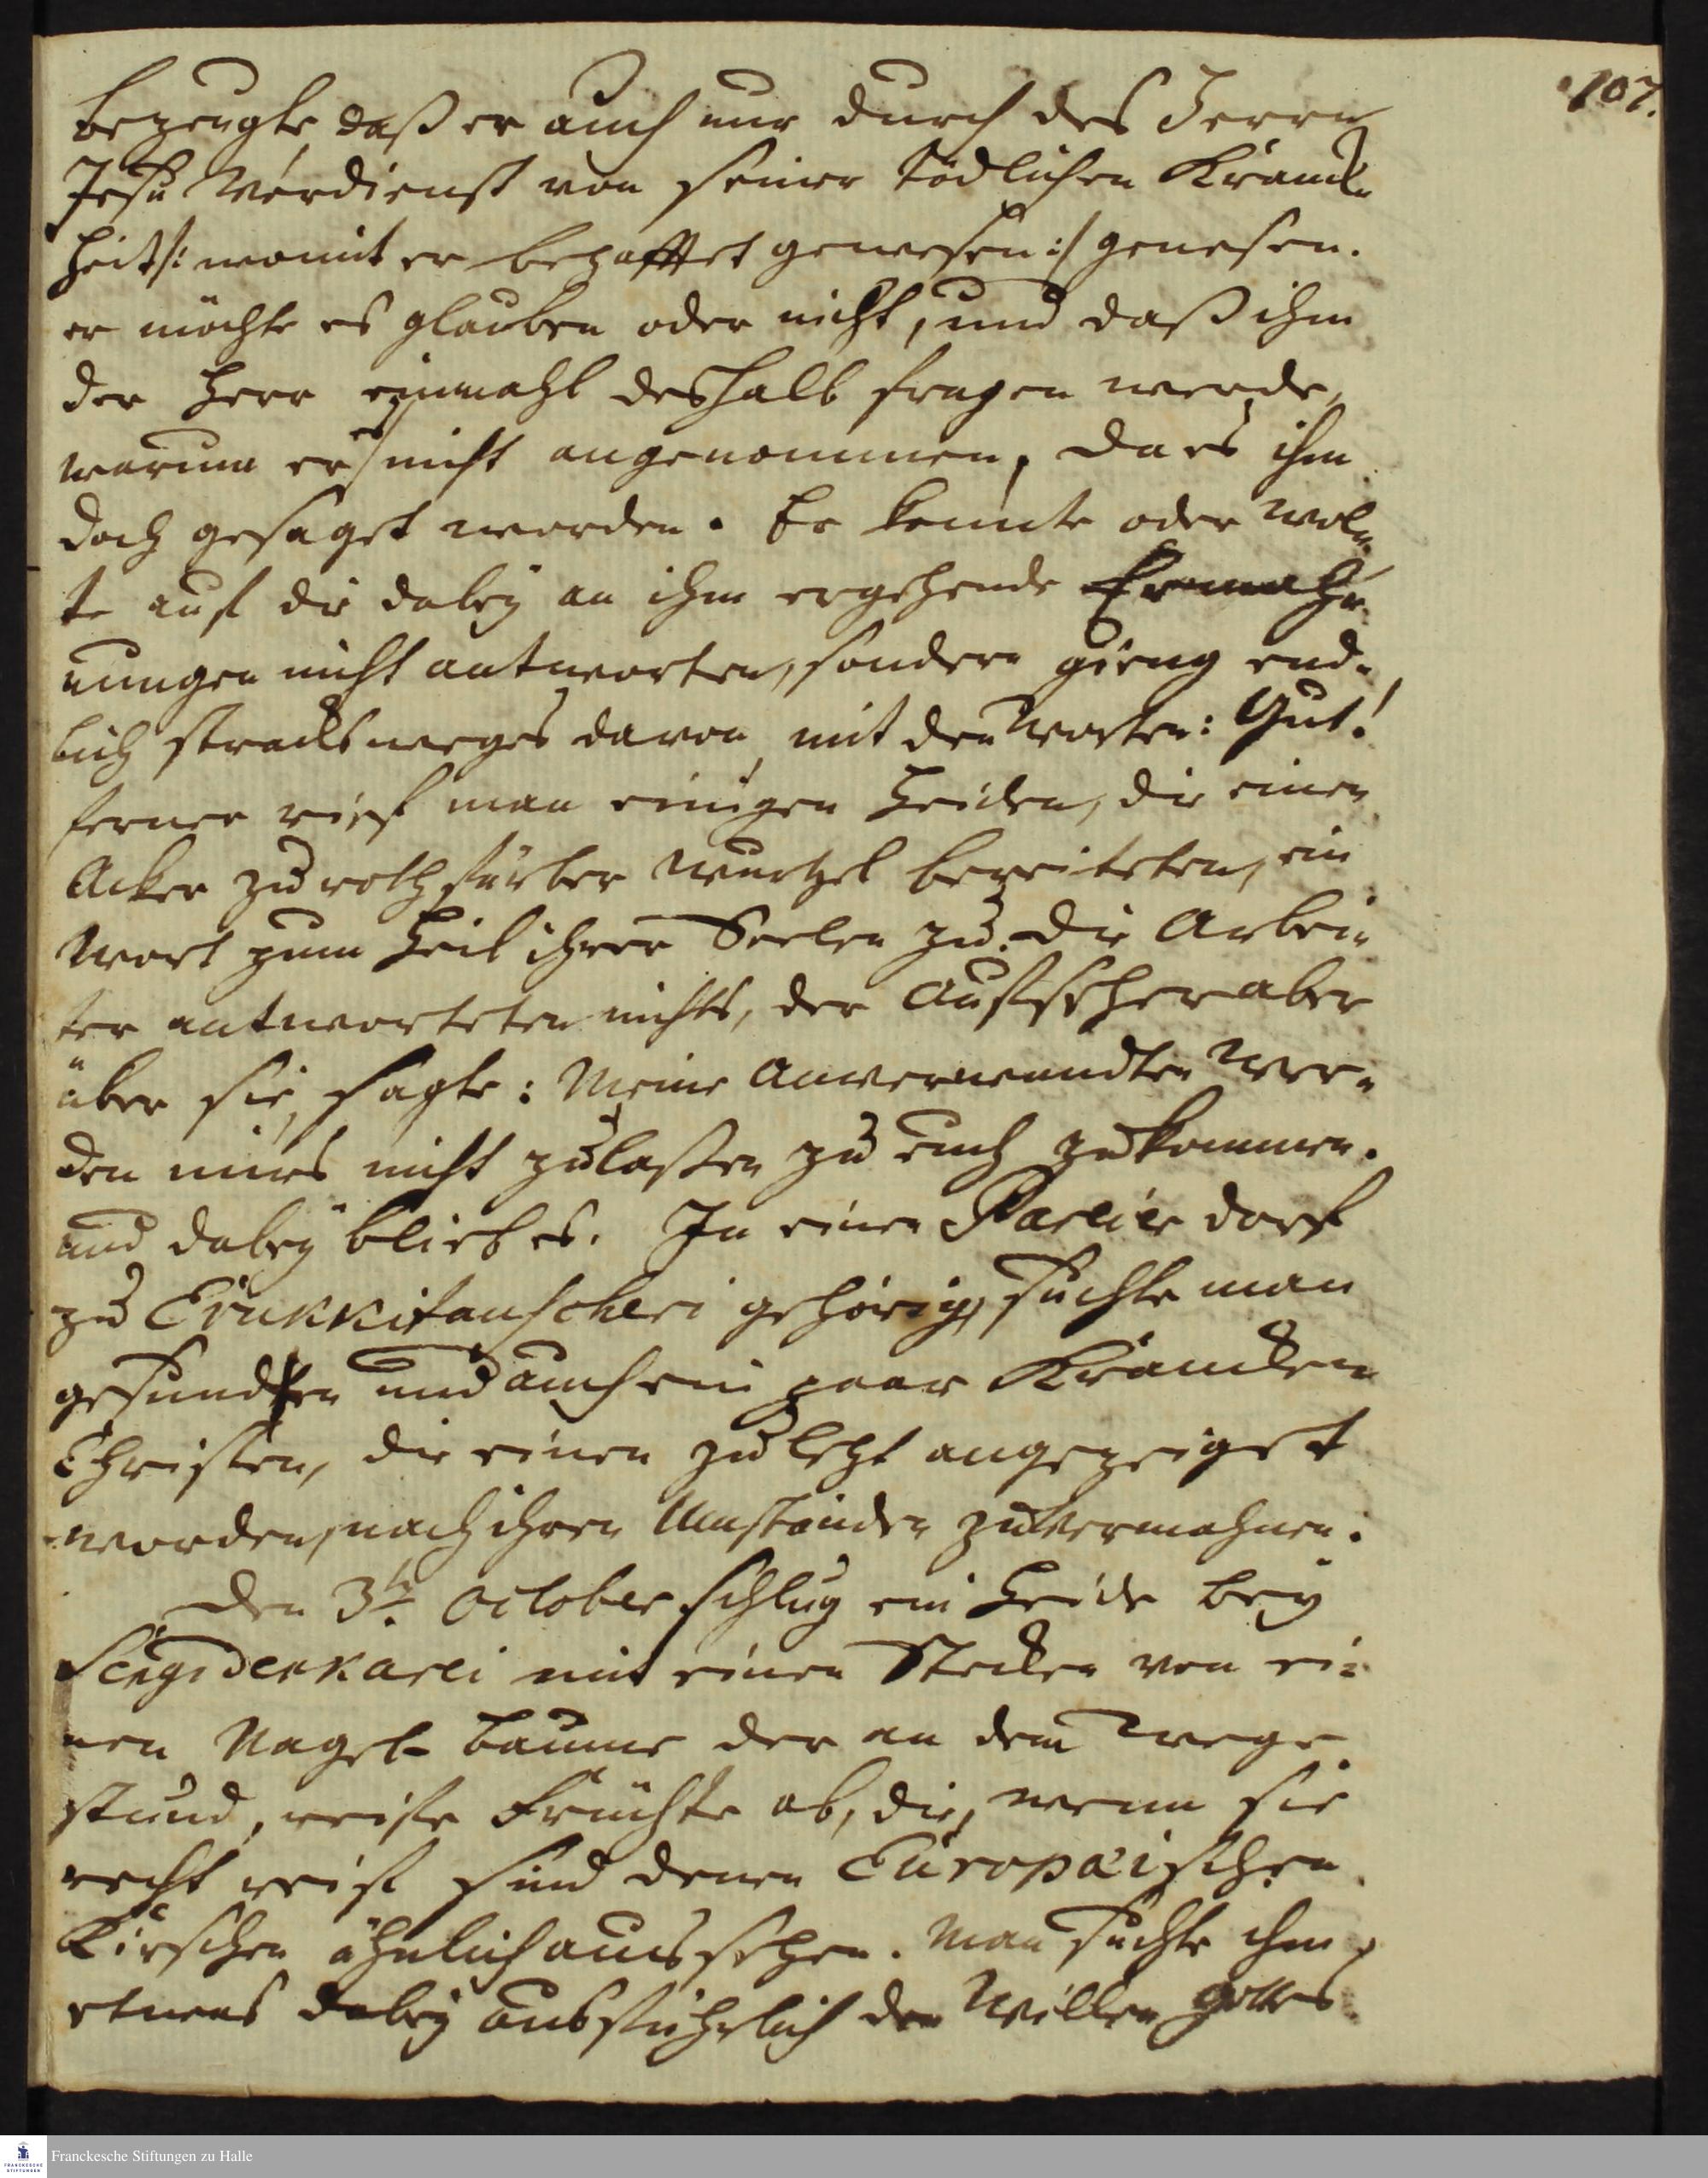 107.
bezeugte, daß er auch nur durch des Herrn
Jesu Verdienst von seiner tödlichen Kranck-
heit /: womit er behafftet gewesen :/ genesen.
er möchte es glauben oder nicht, und daß ihm
der Herr einmahl deshalb fragen werde,
warum er es nicht angenommen, da es ihm
doch gesaget worden. Er konnte oder wol-
te auf die dabey an ihm ergehende Ermah-
nungen nicht antworten, sondern gieng end-
lich stracksweges davon, mit den Worten: Gut!
ferner rief man einigen Heiden, die einen
Acker zu rothfärber Wurtzel bereiteten, ein
Wort zum Heil ihrer Seelen zu. Die Arbei-
ter antworteten nichts, der Aufseher aber
über sie, sagte: Meine Anverwandten wer-
den mirs nicht zulaßen zu euch zukommen.
und dabey blieb es. In einen Pareier dorf
zu Erukkitanscheri gehörig, suchte man
gesunden und auch ein paar Krancken
Christen, die einen zuletzt angezeiget
worden, nach ihren Umständen zu vermahnen.
Den 3t. October schlug ein Heide bey
mit einen Stecken von ei-
nen Nagel-baume der an dem Wege
stund, reife Früchte ab, die, wenn sie
recht reif sind denen Europäischen
Kirschen ähnlich aussehen. Man suchte ihm
etwas dabey ausführlich den Willen Gottes
Franckesche Stiftungen zu Halle
FRANCKESCHE
STIFTUNGEN